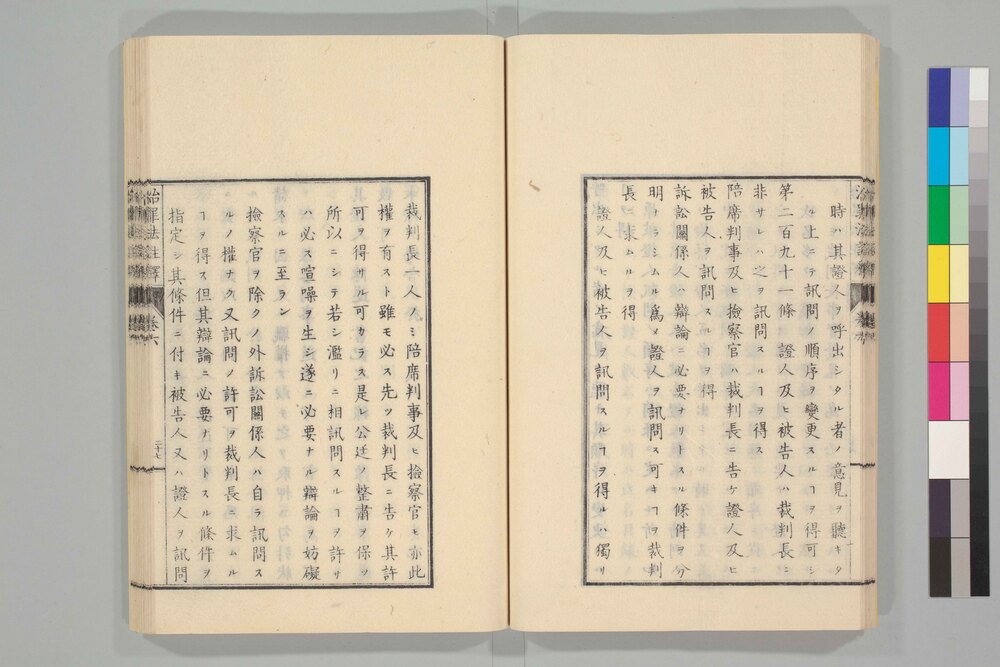 時ハ其證人ヲ呼出シタル者ノ意見ヲ聽キタ
ル上ニテ訊問ノ順序ヲ變更スルヿヲ得可シ
第二百九十一條　證人及ヒ被告人ハ裁判長ニ
非サレハ之ヲ訊問スルヿヲ得ス
陪席判事及ヒ撿察官ハ裁判長ニ告ケ證人及ヒ
被告人ヲ訊問スルヿヲ得
訴訟關係人ハ辯論ニ必要ナリトスル條件ヲ分
明ナラシムル爲メ證人ヲ訊問ス可キヿヲ裁判
長ニ求ムルヲ得
證人及ヒ被告人ヲ訊問スルヿヲ得ルハ獨リ
裁判長一人ノミ陪席判事及ヒ撿察官モ亦此
權ヲ有スト雖モ必ス先ツ裁判長ニ告ケ其許
可ヲ得サル可カラス是レ公廷ノ整肅ヲ保ツ
所以ニシテ若シ濫リニ相訊問スルヿヲ許サ
ハ必ス喧噪ヲ生シ遂ニ必要ナル辯論ヲ妨礙
スルニ至ラン
撿察官ヲ除クノ外訴訟關係人ハ自ラ訊問ス
ルノ權ナク又訊問ノ許可ヲ裁判長ニ求ムル
ヿヲ得ス但其辯論ニ必要ナリトスル條件ヲ
指定シ其條件ニ付キ被告人又ハ證人ヲ訊問
治罪法註釋　卷六